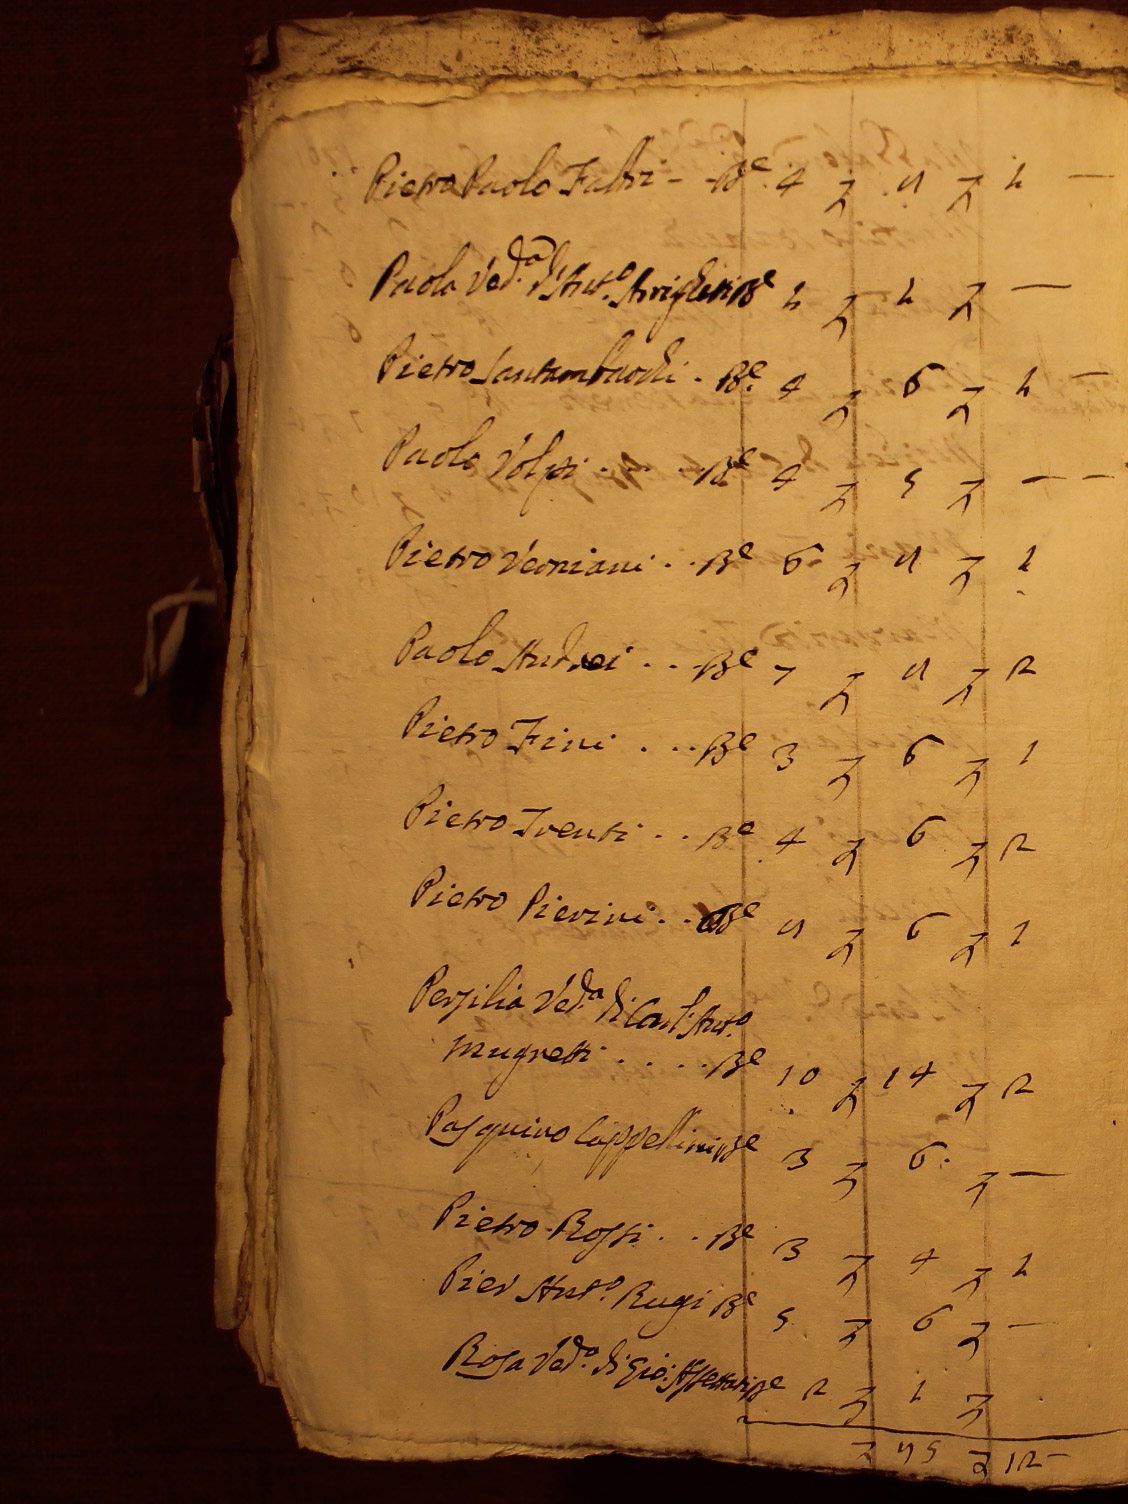 Pietro Paolo Fabri - Be 4 11 1 -
Paola Ved.a d'Ant.o Be 1 1 -
Pietro Santambrochi . Be. 4 6 1 -
Paolo Volpi . . . Be 4 5 - -
Pietro Veoniani . . Be 6 11 1
Paolo Andrei . . . Be 7 11 2
Pietro Fini . . . Be 3 6 1
Pietro Trenti . . Be 4 6 2
Pietro Pierini . . Be 11 6 1
Persilia Ved.a di Ant.o
Mugnetti . . . . Be 10 14 2
Pasquino Cappellini Be 3 6 -
Pietro Rossi . . Be 3 4 1
Pier Ant.o Rugi Be 5 6 -
Rosa Ved.a di Gio: Be 2 1
12 -